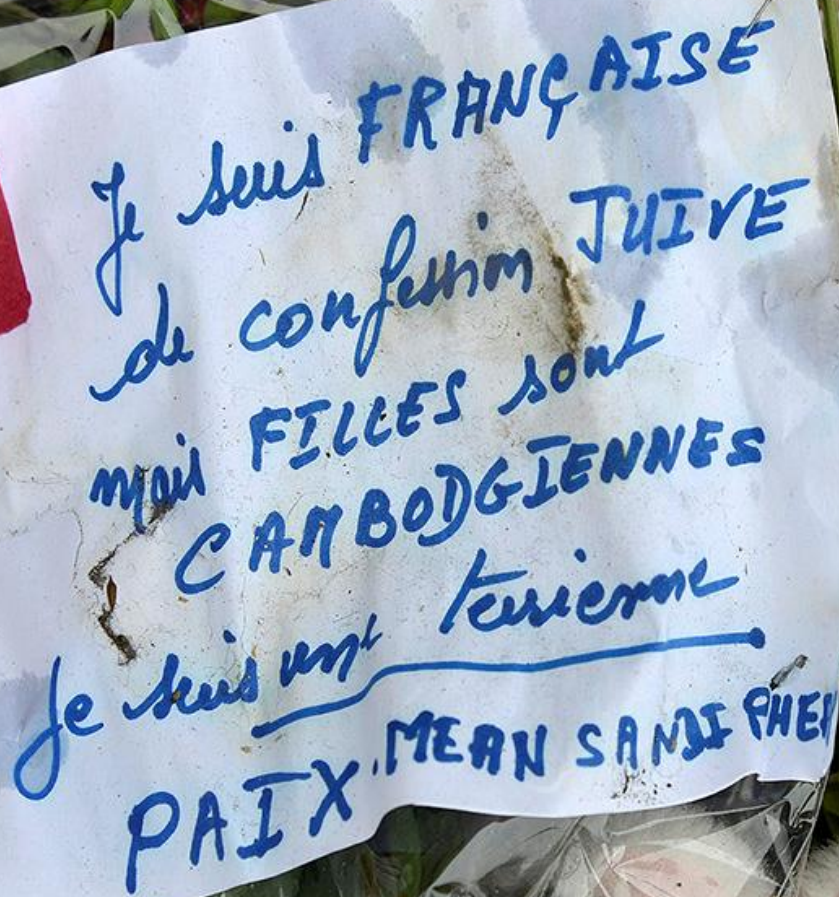 Je suis FRANÇAISE
de confession JUIVE
mais FILLES sont
CAMBODGIENNES
Je suis
PAIX. MEAN SANDI PHEN